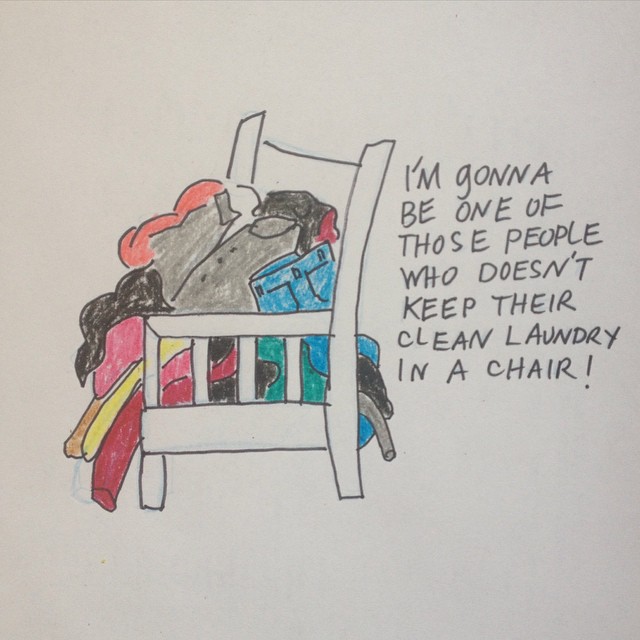 I'M GONNA
BE ONE OF
THOSE PEOPLE
WHO DOESN'T
KEEP THEIR
CLEAN LAUNDRY
IN A CHAIR!